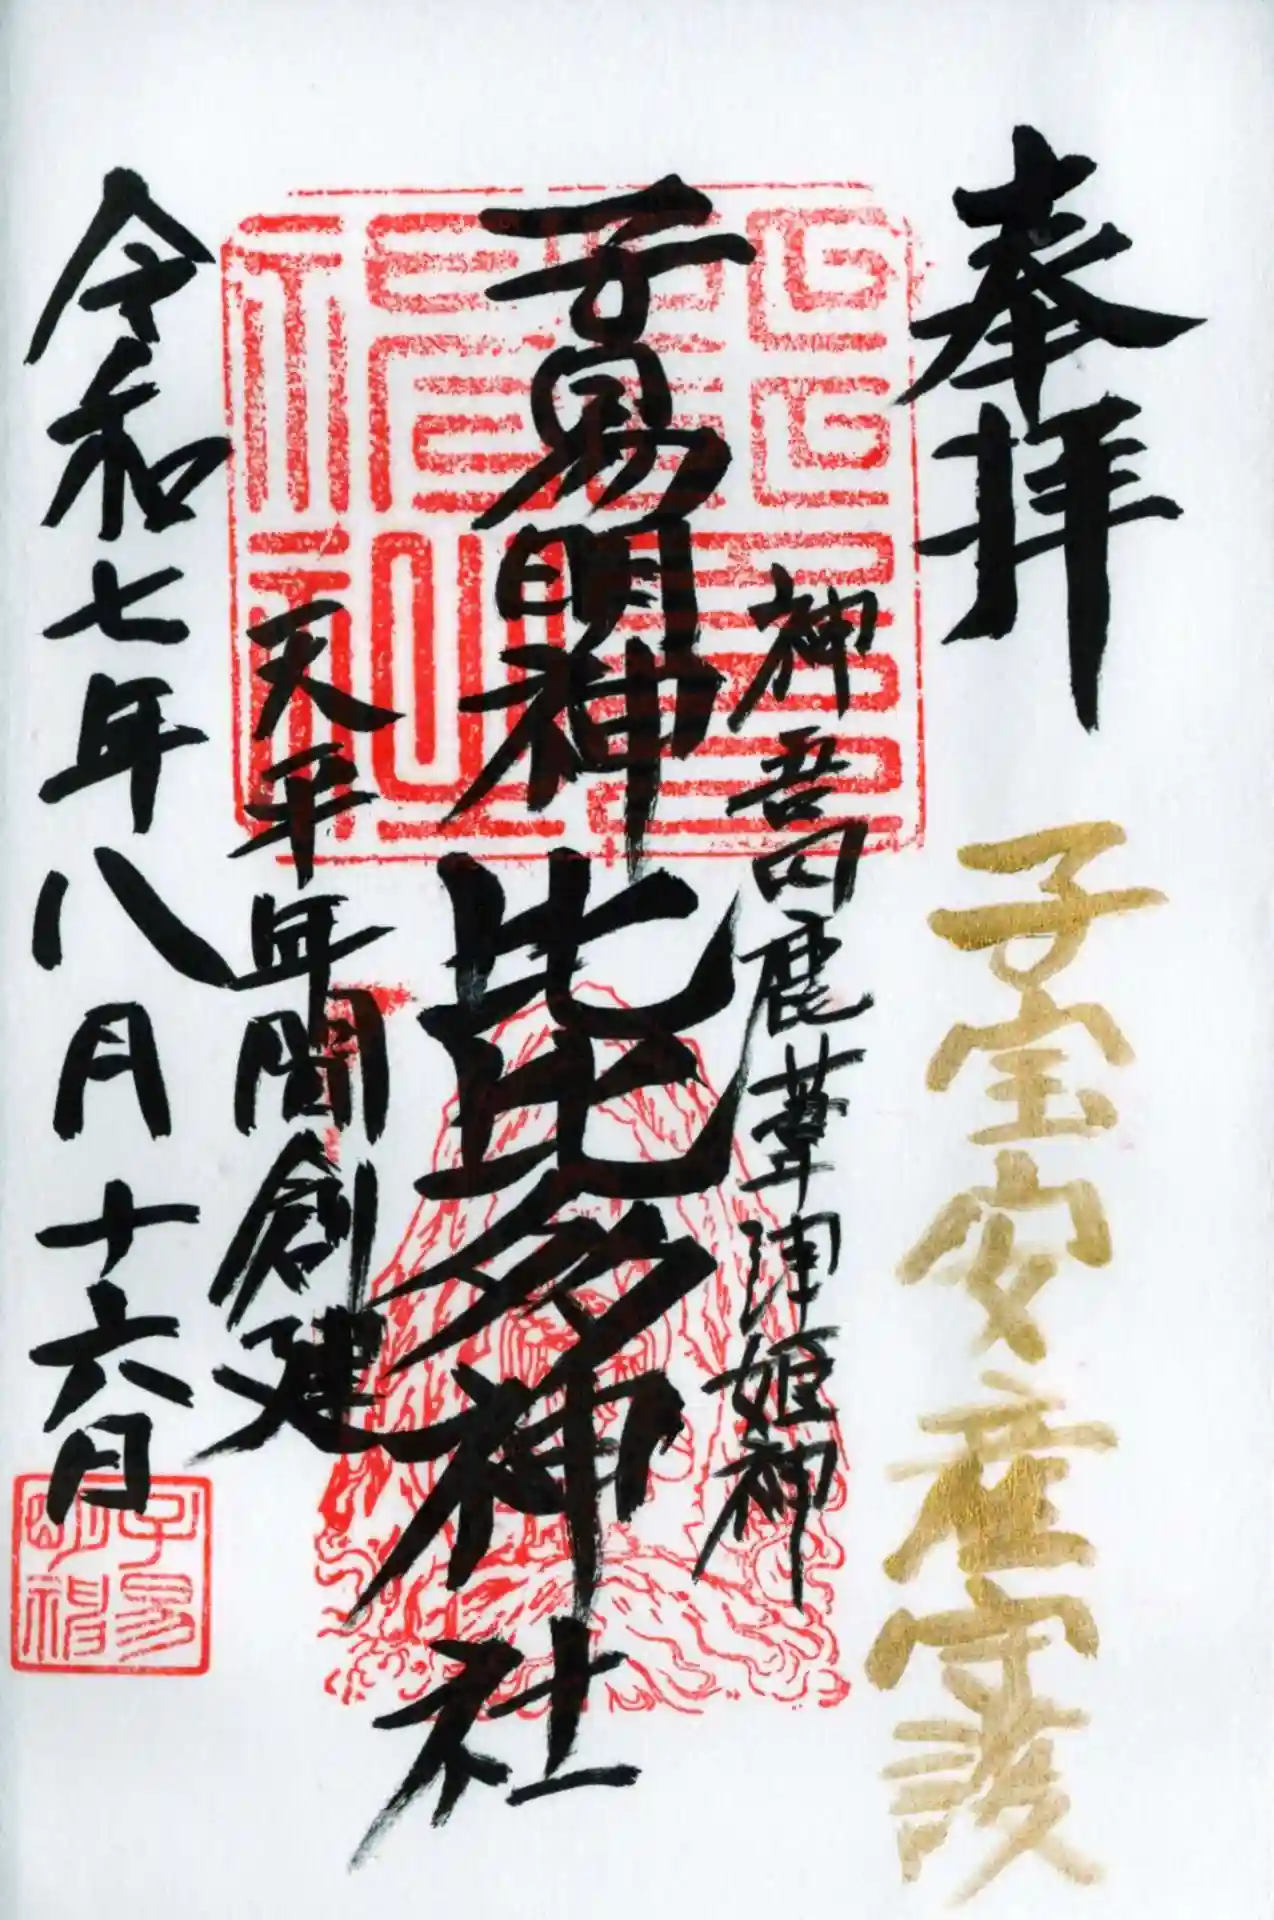 奉拝
子宝安産守護
神吾田鹿葦津姫神
子易明神
比比多神社
天平年間創建
令和七年八月十六日
子易明神